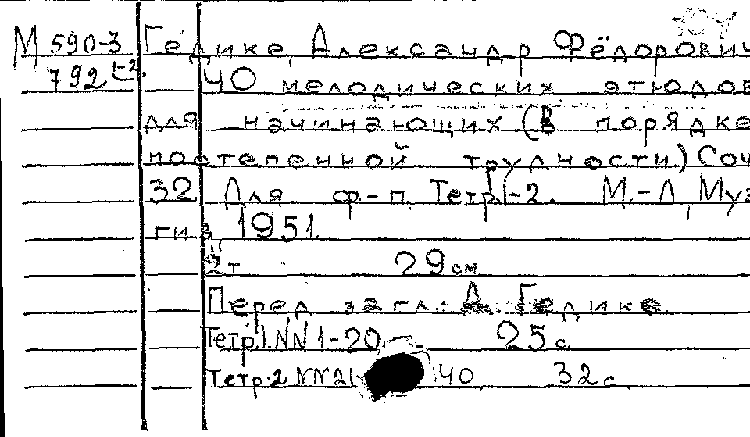 М 590-3 Гедике, Александр Фёдорович
792 t-2. 40 мелодических этюдов
для начинающих (в порядке
постепенной трудности) Соч
32 Для ф-п. Тетр. 1-2. М.-Л, Муз
гиз 1951.
2 т 29 см
Перед загл.: А. Гедике.
Тетр. 1. NN 1-20 25 с
Тетр. 2 NN 21 40 32 с